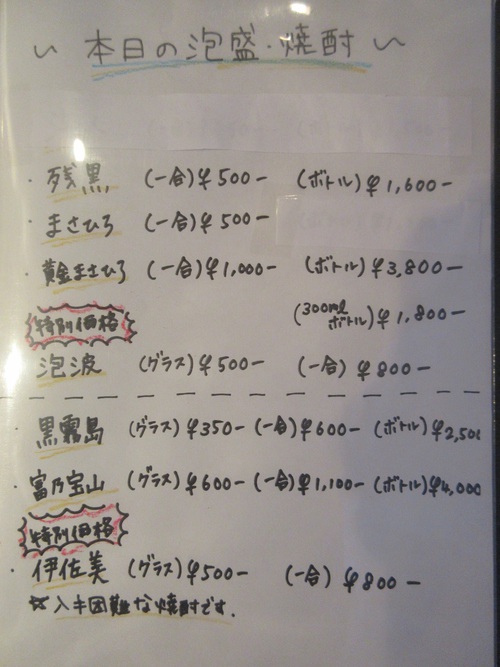 〜 本日の泡盛・焼酎 〜
・残黒 (一合)¥500ー (ボトル)¥1,600ー
・まさひろ (一合)¥500ー
・黄金まさひろ (一合)¥1,000ー (ボトル)¥3,800ー
特別価格 (300mlボトル)¥1,800ー
泡波 (グラス)¥500ー (一合)¥800ー
・黒霧島 (グラス)¥350ー (一合)¥600ー (ボトル)¥2,500
・富乃宝山 (グラス)¥600ー (一合)¥1,100ー (ボトル)¥4,000
特別価格
・伊佐美 (グラス)¥500ー (一合)¥800ー
☆入手困難な焼酎です.